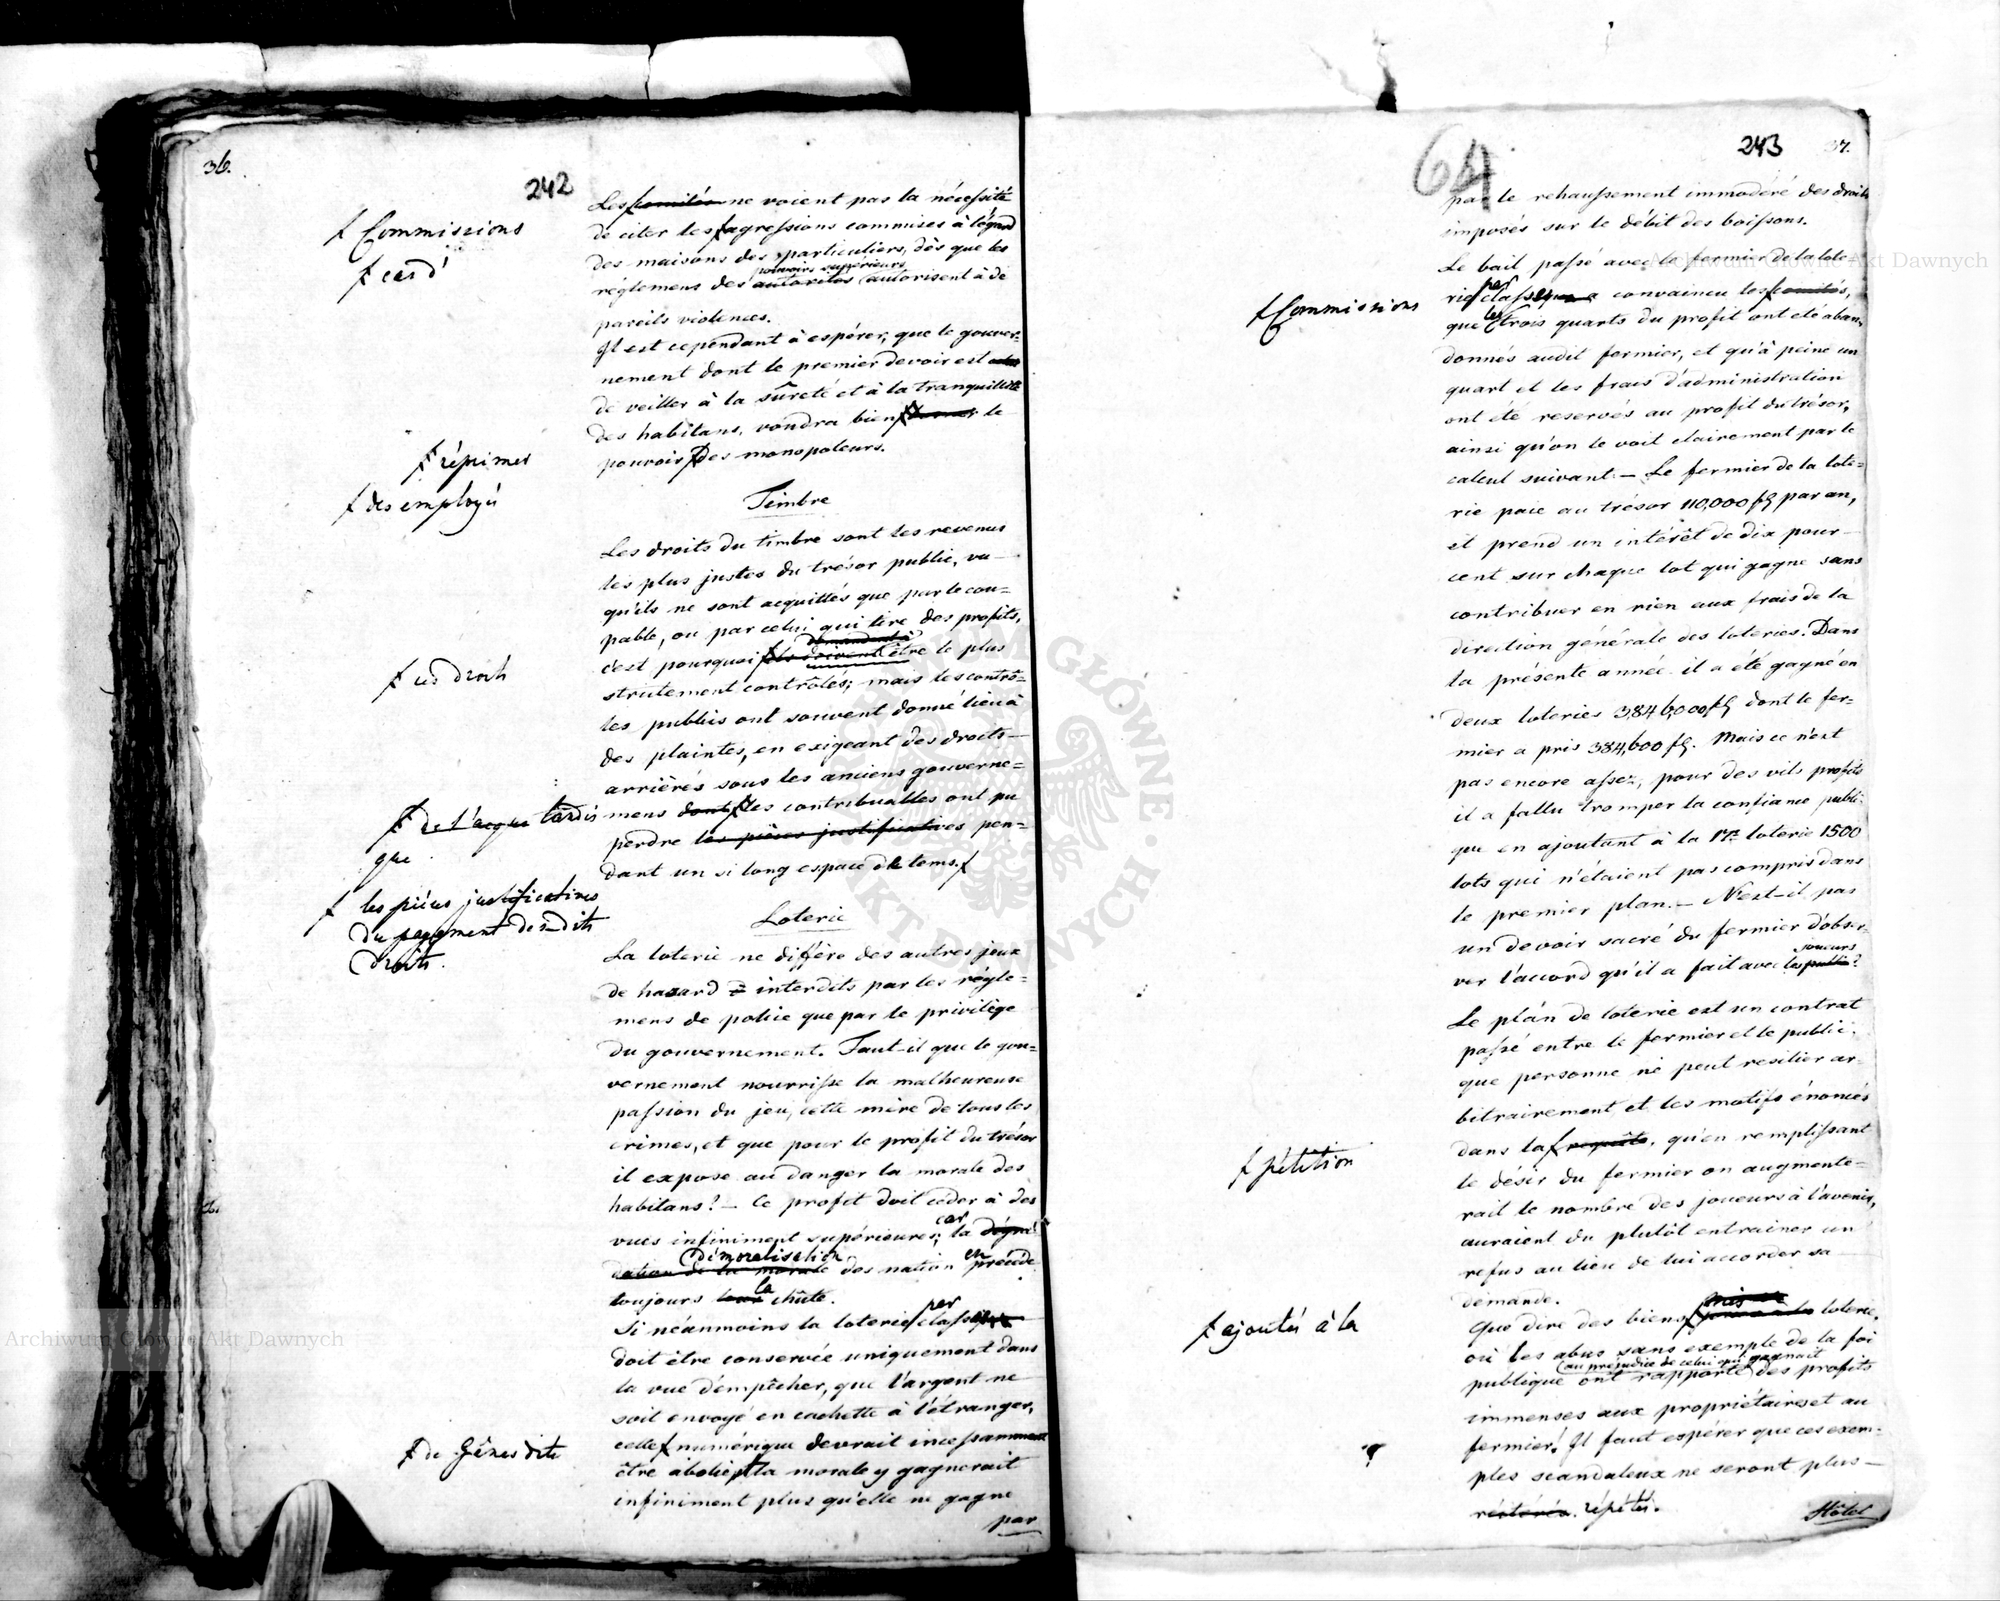 36.
242
ƒ Commissions
ƒ cas d'
ƒ réprimer
ƒ des employés
ƒ ces droits
ƒ de l'acquit tandis
que
ƒ les pièces justificatives
du payement desdits
droits.
ƒ de Gênes dite
Les ƒ comités ne voient pas la nécessité
de citer les ƒ agressions commises à l'égard
des maisons des particuliers, dès que les
pouvoirs supérieurs
réglemens des autorités autorisent à de
pareils violences.
Il est cependant à espérer, que le gouver=
nement dont le premier devoir est
de veiller à la sûreté et à la tranquillité
des habitans, voudra bien ƒ le
pouvoir ƒ des monopoleurs.
Timbre
Les droits du timbre sont les revenus
les plus justes du trésor public, vu
qu'ils ne sont acquittés que par le cou=
pable, ou par celui qui tire des profits,
demandent à
c'est pourquoi ƒ ils doivent être le plus
strictement contrôlés; mais les contrô=
les publics ont souvent donné lieu à
des plaintes, en exigeant des droits
arriérés sous les anciens gouverne=
mens dont ƒ les contribuables ont pu
perdre les pièces justificatives pen=
dant un si long espace de tems. ƒ
Loterie
La loterie ne diffère des autres jeux
de hazard interdits par les régle=
mens de police que par le privilège
du gouvernement. Faut-il que le gou=
vernement nourrisse la malheureuse
passion du jeu, cette mère de tous les
crimes, et que pour le profit du trésor
il expose au danger la morale des
habitans? — Ce profit doit céder à des
car
vues infiniment supérieures; la dégra
démoralisation en
dation de la morale des nation précède
la
toujours leur chûte.
par
Si néanmoins la loterie classique
doit être conservée uniquement dans
la vue d'empêcher, que l'argent ne
soit envoyé en cachette à l'étranger,
celle ƒ numérique devrait incessamment
être abolie, la morale y gagnerait
infiniment plus qu'elle ne gagne
par
64
243
37.
ƒ Commissions
ƒ pétition
ƒ ajoutés à la
par le rehaussement immodéré des droits
imposés sur le débit des boissons.
Le bail passé avec le fermier de la lote=
par
rie classique a convaincu les ƒ comités,
les
que trois quarts du profit ont été aban=
donnés audit fermier, et qu'à peine un
quart et les frais d'administration
ont été reservés au profit du trésor,
ainsi qu'on le voit clairement par le
calcul suivant. — Le fermier de la lote=
rie paie au trésor 110,000 fl par an,
et prend un intérêt de dix pour
cent sur chaque lot qui gagne sans
contribuer en rien aux frais de la
direction générale des loteries. Dans
la présente année il a été gagné en
deux loteries 3,846,000 fl dont le fer=
mier a pris 384,600 fl. Mais ce n'est
pas encore assez, pour des vils profits
il a fallu tromper la confiance publi=
que en ajoutant à la 1re loterie 1500
lots qui n'étaient pas compris dans
le premier plan. — N'est-il pas
un devoir sacré du fermier d'obser=
joueurs
ver l'accord qu'il a fait avec les public?
Le plan de loterie est un contrat
passé entre le fermier et le public,
que personne ne peut resilier ar=
bitrairement et les motifs énoncés
dans la ƒ requête, qu'en remplissant
le désir du fermier on augmente=
rait le nombre des joueurs à l'avenir,
auraient du plutôt entrainer un
refus au lieu de lui accorder sa
demande.
mis
Que dire des biens ƒ loterie,
où les abus sans exemple de la foi
(au préjudice de celui qui gagnait
publique ont rapporté des profits
immenses aux propriétaires et au
fermier! Il faut espérer que ces exem=
ples scandaleux ne seront plus
réitérés. répétés.
Hôtel
Archiwum Główne Akt Dawnych
Archiwum Główne Akt Dawnych
ARCHIWUM GŁÓWNE AKT DAWNYCH